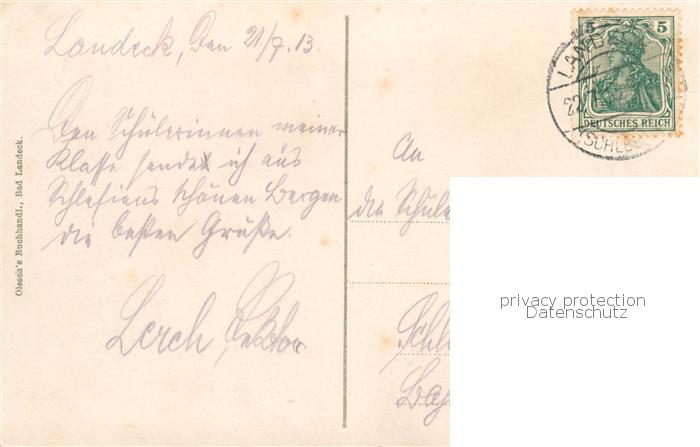 Landeck, den 21/7. 13.
Den Schülerinnen meiner
Klasse sende ich aus
Schlesiens schönen Bergen
die besten Grüße.
Lerch, Rektor
Olesch's Buchhandl., Bad Landeck.
5 5
DEUTSCHES REICH
LANDE
22.7.
SCHLES
An
die Schüle
privacy protection
Datenschutz
Schl